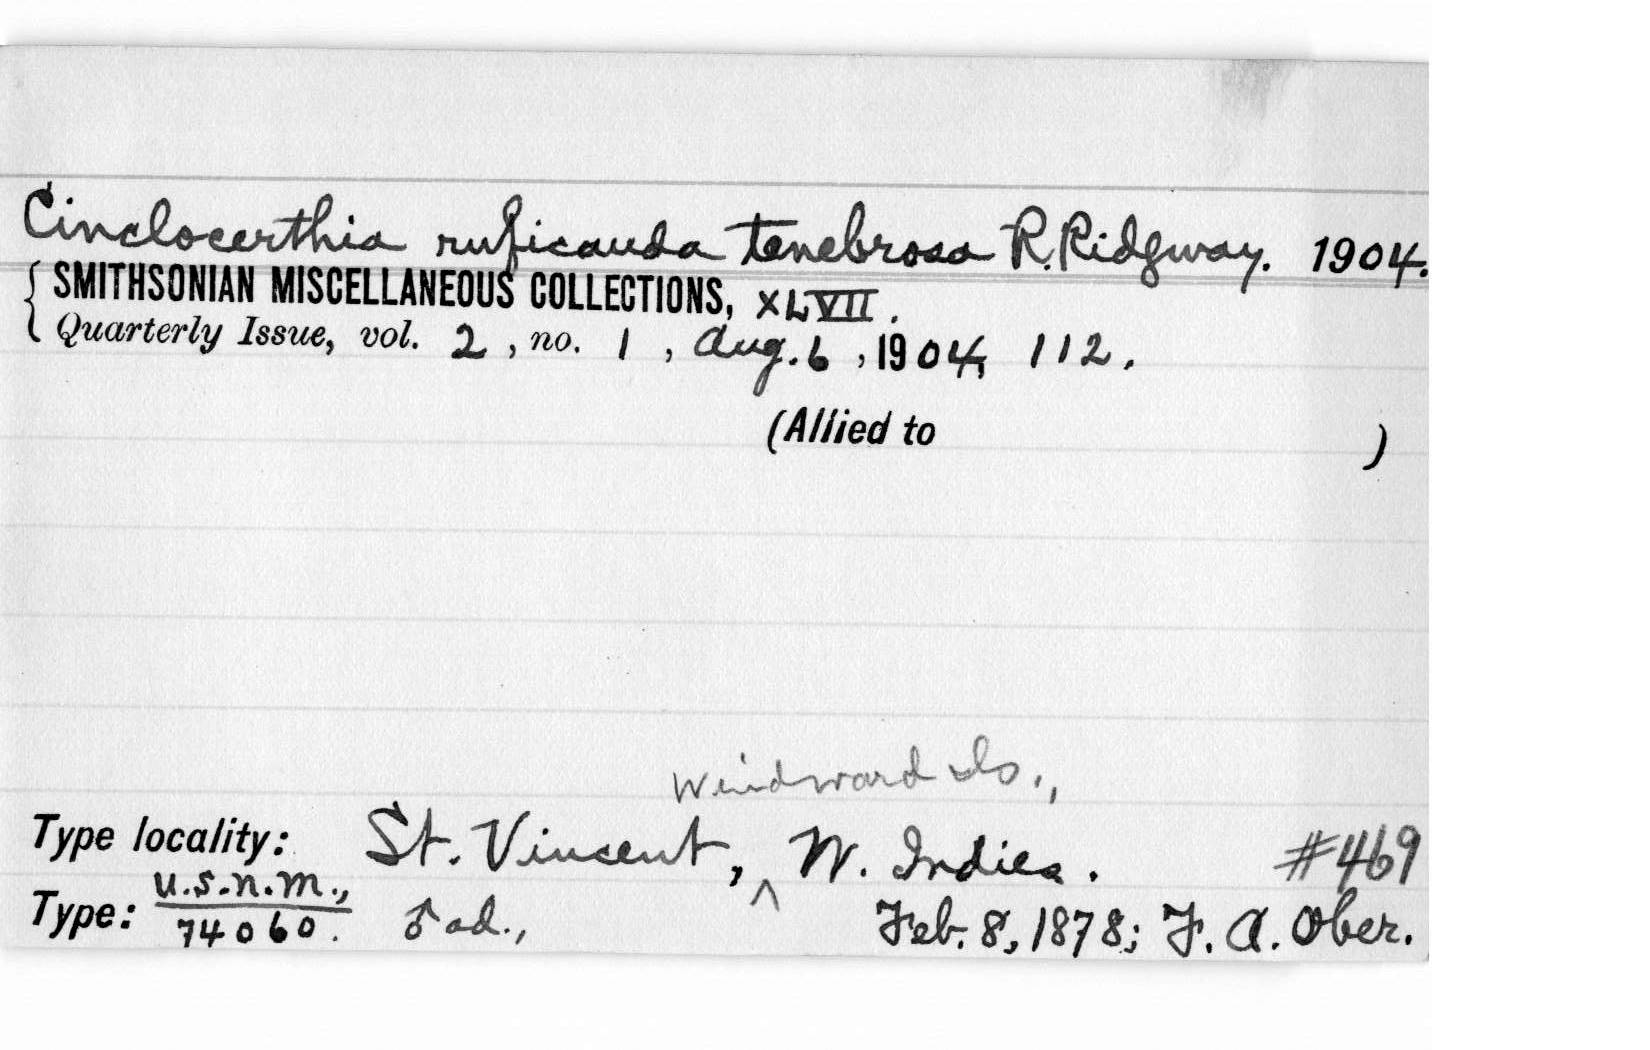 Cinclocerthia ruficauda tenebrosa R. Ridgway. 1904.
{ SMITHSONIAN MISCELLANEOUS COLLECTIONS, XLVII.
Quarterly Issue, vol. 2, no. 1, Aug. 6, 1904, 112.
(Allied to )
Windward Is.,
Type locality: St. Vincent, ^ W. Indies. #469
Type: U.S.N.M., 74060. ♂ ad., Feb. 8, 1878; F. A. Ober.